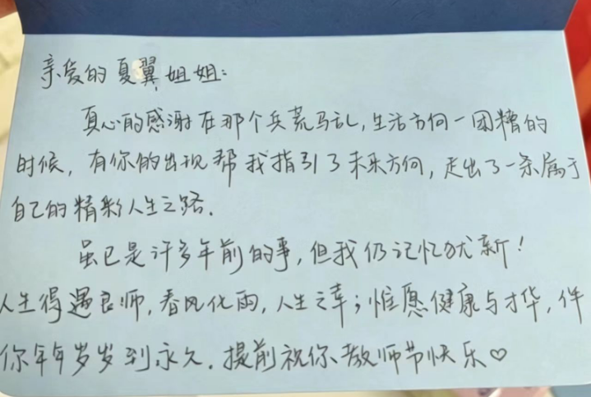 亲爱的夏翼姐姐:
真心的感谢在那个兵荒马乱,生活方向一团糟的
时候,有你的出现帮我指引了未来方向,走出了一条属于
自己的精彩人生之路.
虽已是许多年前的事,但我仍记忆犹新!
人生得遇良师,春风化雨,人生之幸;惟愿健康与才华,伴
你年年岁岁到永久.提前祝你教师节快乐♡